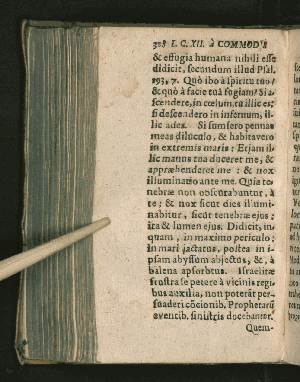 308 I. C. XII. à COMMODIS
& effugia humana nihili esse
didicit, secundum illud Psal.
193, 7. Quò ibo à spiritu tuo/
& quò à facie tuâ fugiam? Si a-
scendere, in cœlum, tu illic es:
si descendero in infernum, il-
lic ades. Si sumsero pennas
meas diluculo, & habitavero
in extremis maris: Etjam il-
lic manus tua duceret me, &
appræhenderet me: & nox
illuminatio ante me. Quia te-
nebræ non obscurabuntur, à
te: & nox sicut dies illumi-
nabitur, sicut tenebræ ejus:
ita & lumen ejus. Didicit, in-
quam, in maximo periculo:
In mari jactatus, postea in i-
psam abyssum abjectus, &, à
balena absorbtus. Israelitæ
frustra se petere à vicinis regi-
bus auxilia, non poterāt per-
suaderi cōcionib. Prophetarū
eventib. sinistris docebantur.
Quem-